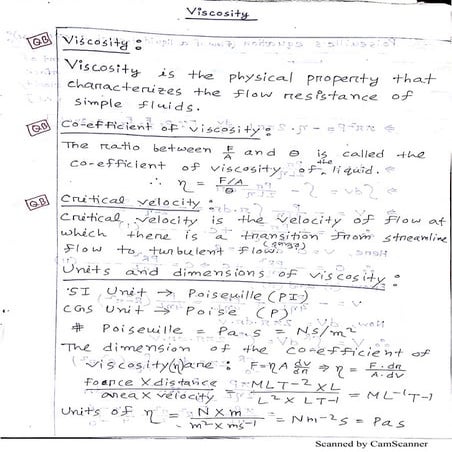 Viscosity
QB Viscosity :
Viscosity is the physical property that
characterizes the flow resistance of
simple fluids.
QB Co-efficient of viscosity :
The ratio between F/A and θ is called the
co-efficient of viscosity of the liquid.
∴ η = F/A / θ
QB Critical velocity :
Critical velocity is the velocity of flow at
which there is a transition from streamline
flow to turbulent flow.
Units and dimensions of viscosity :
SI Unit → Poiseuille (PI)
CGS Unit → Poise (P)
# Poiseuille = Pa.s = Ns/m²
The dimension of the co-efficient of
viscosity(η)are : F=ηA dv/dn ⇒ η = F.dn/A.dv
force X distance / area X velocity = MLT-2 XL / L² X LT-1 = ML-1T-1
Units of η = N X m / m² X ms-1 = Nm-2s = Pas
Scanned by CamScanner